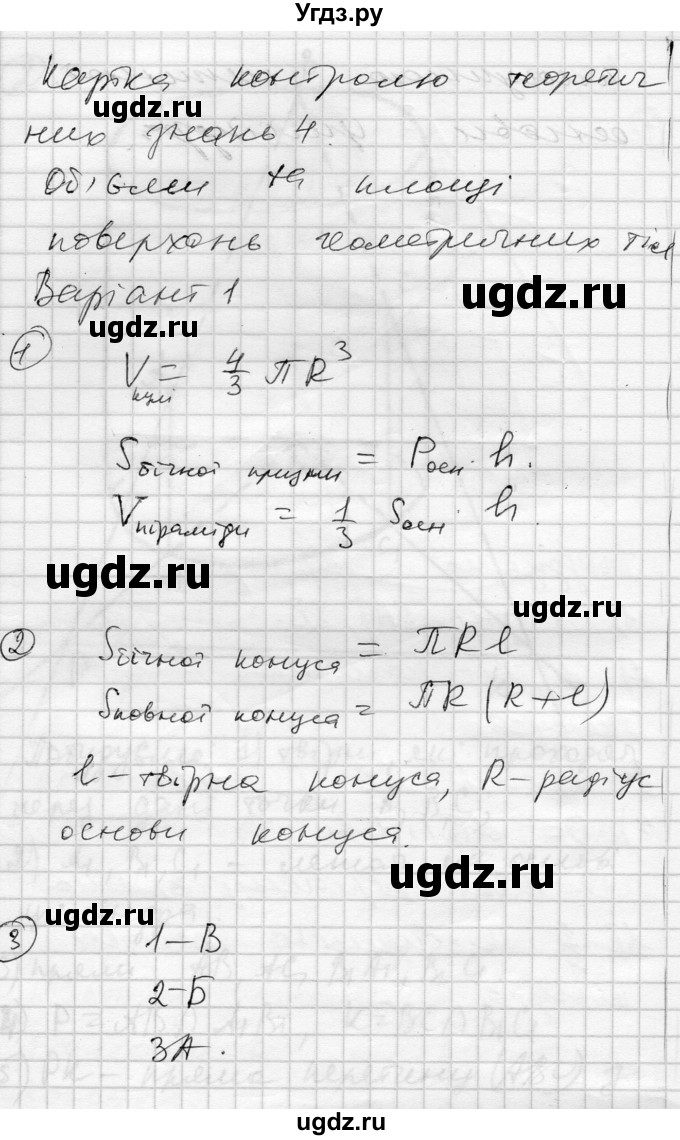 Угдз.ру
Картка контролю теоретич
них знань 4.
ugdz.ru
Об'єми та площі
поверхонь геометричних тіл
Варіант 1
ugdz.ru
ugdz.ru
1 Vкулі = 4/3 πR³
Sбічної призми = Pосн · h.
Vпіраміди = 1/3 Sосн · h.
ugdz.ru
ugdz.ru
2 Sбічної конуса = πRl
Sповної конуса = πR(R+l)
l – твірна конуса, R – радіус
основи конуса.
ugdz.ru
ugdz.ru
3 1 – В
2 – Б
3А.
ugdz.ru